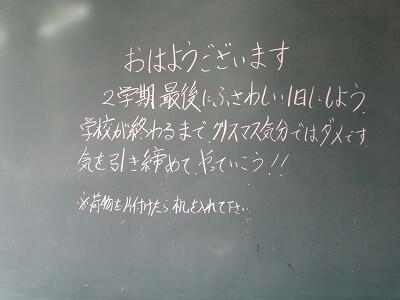 おはようございます
2学期最後にふさわしい1日にしよう.
学校が終わるまで、クリスマス気分ではダメです
気を引き締めて、やっていこう!!
※荷物を片付けたら机を入れて下さい